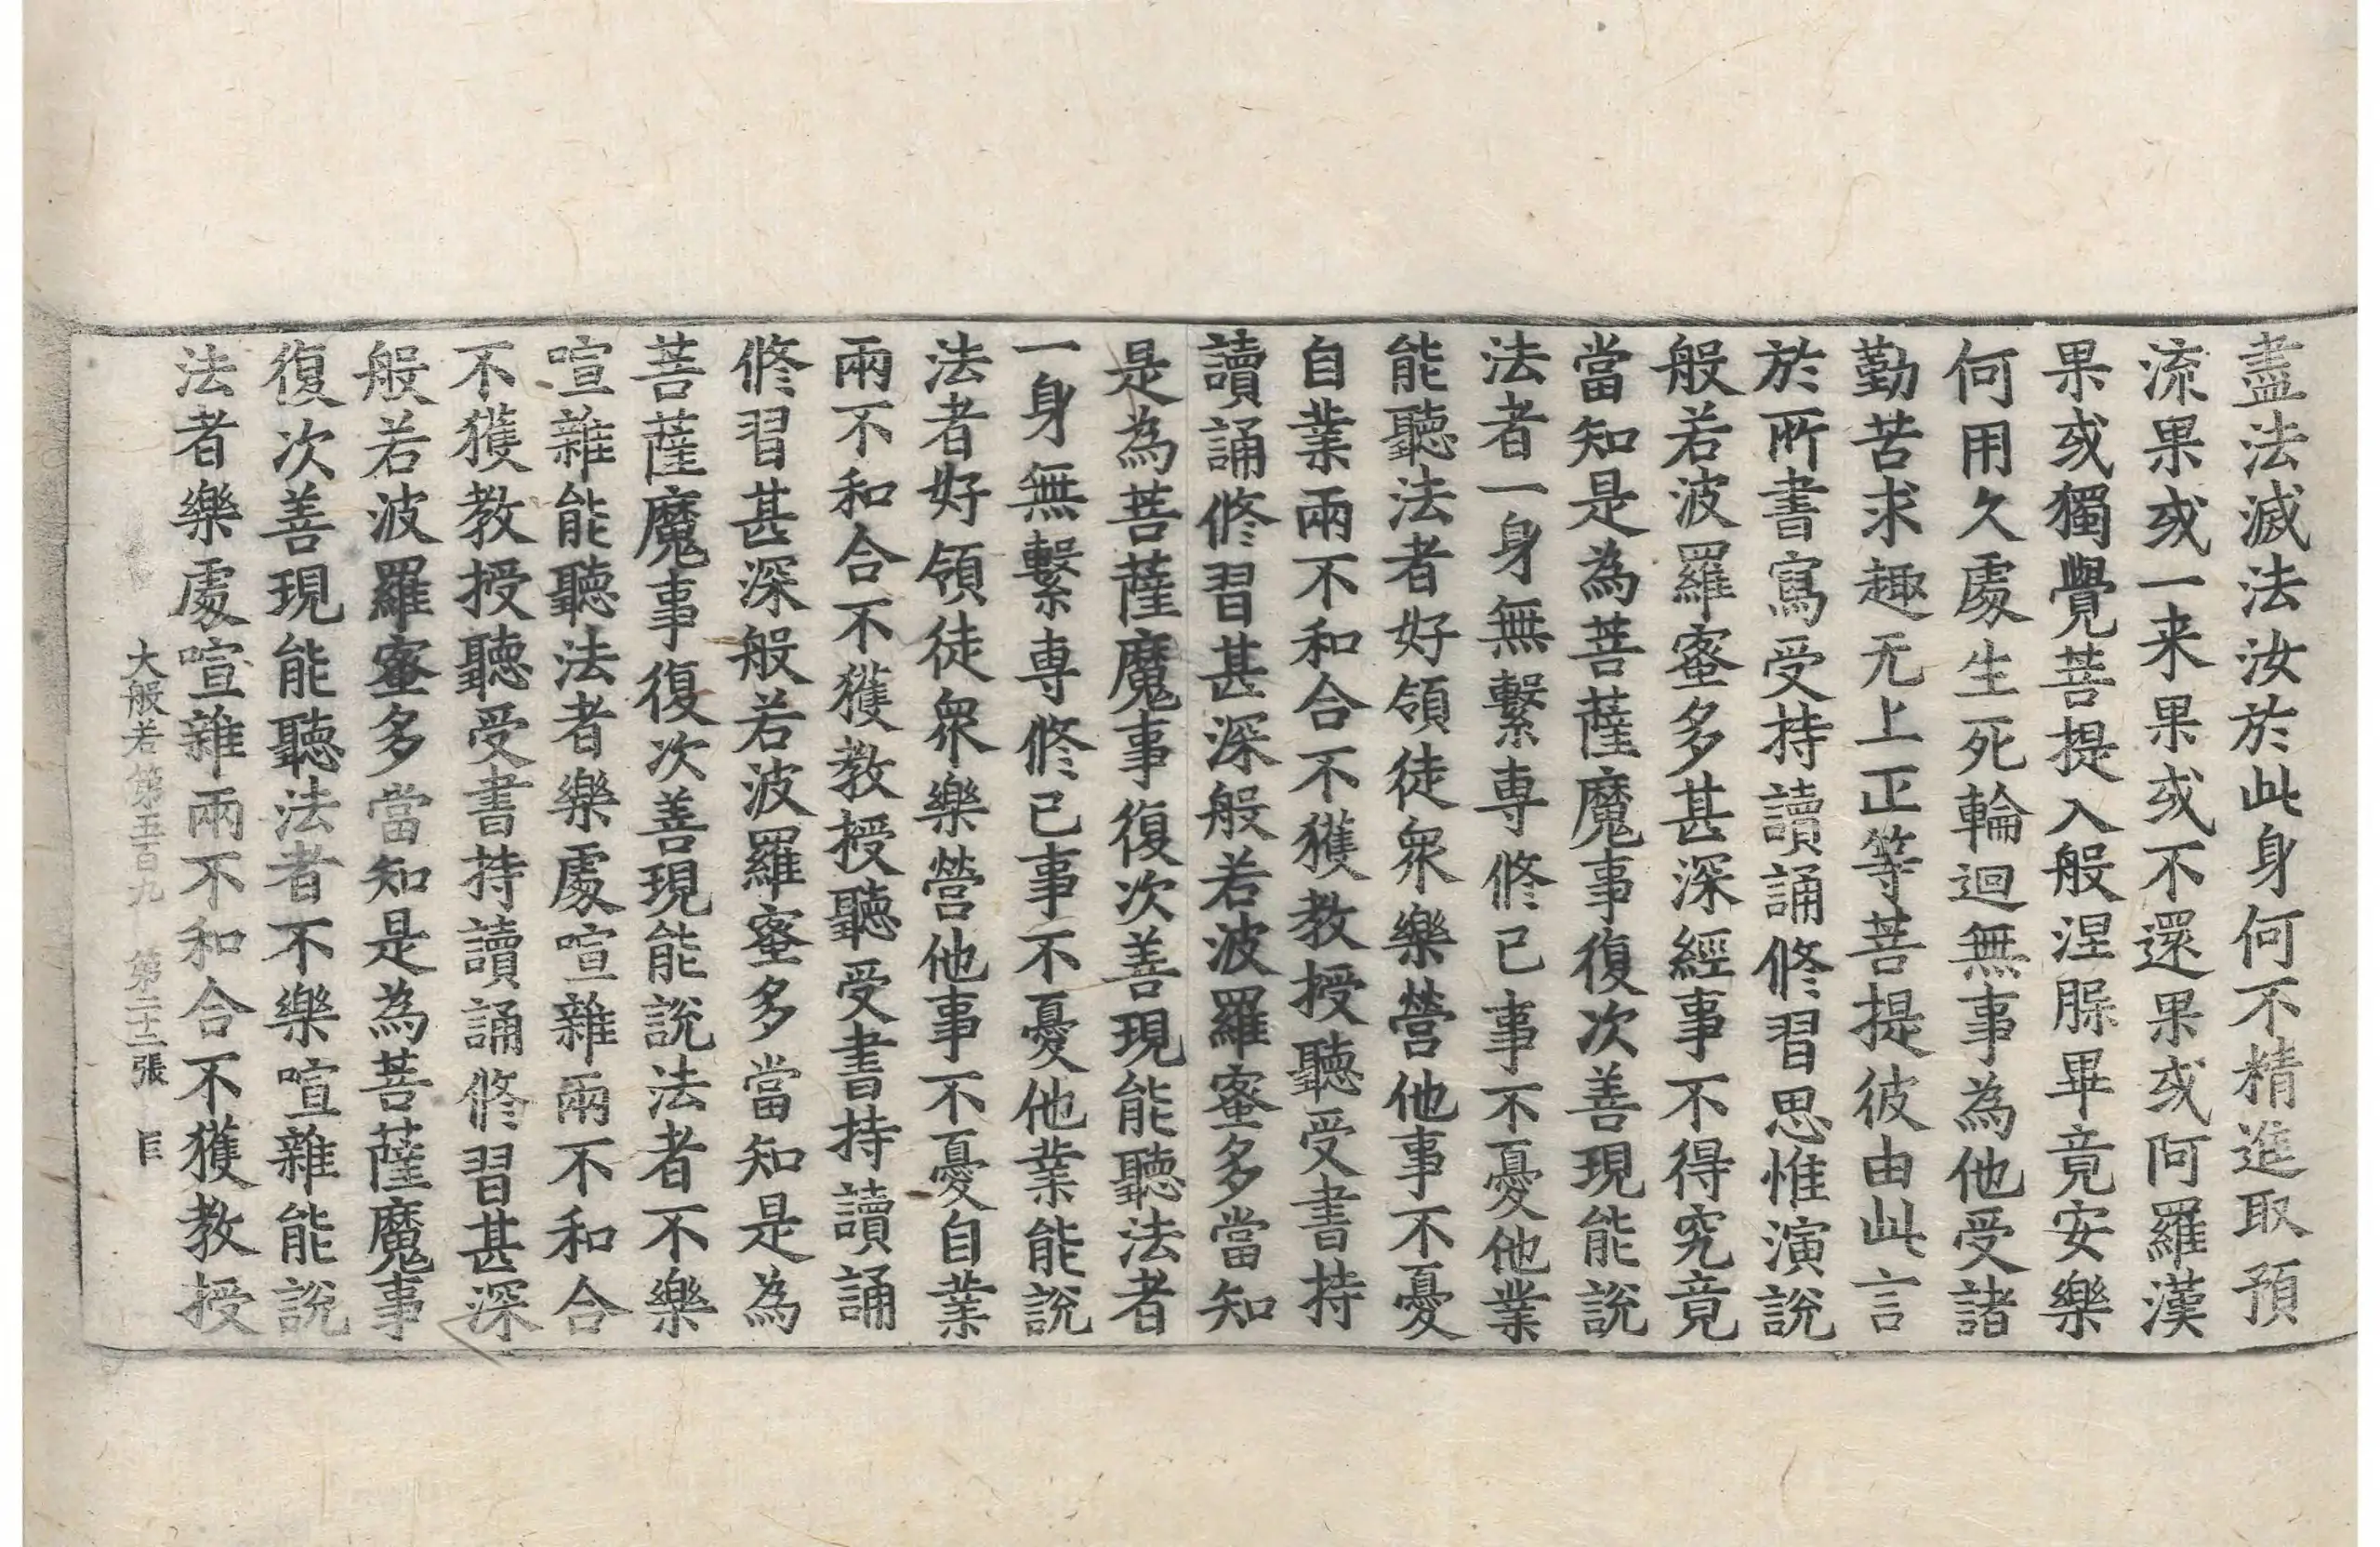 盡法滅法汝於此身何不精進取預
流果或一来果或不還果或阿羅漢
果或獨覺菩提入般涅槃畢竟安樂
何用久處生死輪迴無事為他受諸
勤苦求趣无上正等菩提彼由此言
於所書寫受持讀誦修習思惟演說
般若波羅蜜多甚深經事不得究竟
當知是為菩薩魔事復次善現能說
法者一身無繫専修己事不憂他業
能聽法者好領徒衆樂營他事不憂
自業兩不和合不獲教授聽受書持
讀誦修習甚深般若波羅蜜多當知
是為菩薩魔事復次善現能聽法者
一身無繫専修己事不憂他業能說
法者好領徒衆樂營他事不憂自業
兩不和合不獲教授聽受書持讀誦
修習甚深般若波羅蜜多當知是為
菩薩魔事復次善現能說法者不樂
喧雜能聽法者樂處喧雜兩不和合
不獲教授聽受書持讀誦修習甚深
般若波羅蜜多當知是為菩薩魔事
復次善現能聽法者不樂喧雜能說
法者樂處喧雜兩不和合不獲教授
大般若第五百九 第二十二張